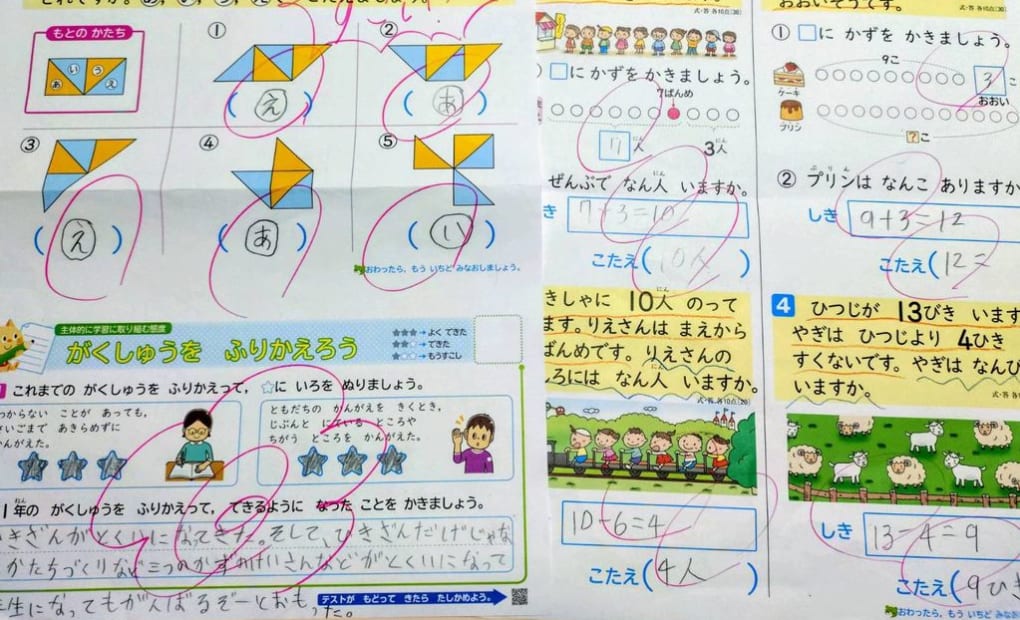 もとの かたち
あ い う え
①
(え)
②
(あ)
③
(え)
④
(あ)
⑤
(い)
おわったら、もう いちど みなおしましょう。
主体的に学習に取り組む態度
がくしゅうを ふりかえろう
★★★→よく できた
★★☆→できた
★☆☆→もうすこし
これまでの がくしゅうを ふりかえって、☆に いろを ぬりましょう。
つからない ことが あっても、
さいごまで あきらめずに
かんがえた。
ともだちの かんがえを きくとき、
じぶんと にている ところや
ちがう ところを かんがえた。
1年の がくしゅうを ふりかえって、できるように なった ことを かきましょう。
きざんがとくいになてきた。そして、ひきざんだけじゃな
かたちづくりなど三つのかずのけいさんなどがとくいになって
年生になってもがんばるぞーとおもった。
テストが もどって きたら たしかめよう。
式・答 各10点
□に かずを かきましょう。
7ばんめ
7人
3人
ぜんぶで なん人 いますか。
き 7+3=10
こたえ(10人)
きしゃに 10人 のって
ます。りえさんは まえから
ばんめです。りえさんの
ろには なん人 いますか。
式・答 各10点(20)
10-6=4
こたえ(4人)
おおいそうです。
式・答 各10点(30)
① □に かずを かきましょう。
9こ
ケーキ
3こ
おおい
プリン
?こ
② プリンは なんこ ありますか
しき 9+3=12
こたえ(12こ
4 ひつじが 13びき います
やぎは ひつじより 4ひき
すくないです。やぎは なんび
いますか。
式・答 各10
しき 13-4=9
こたえ(9ひき
おわったら、もう いちど みなお